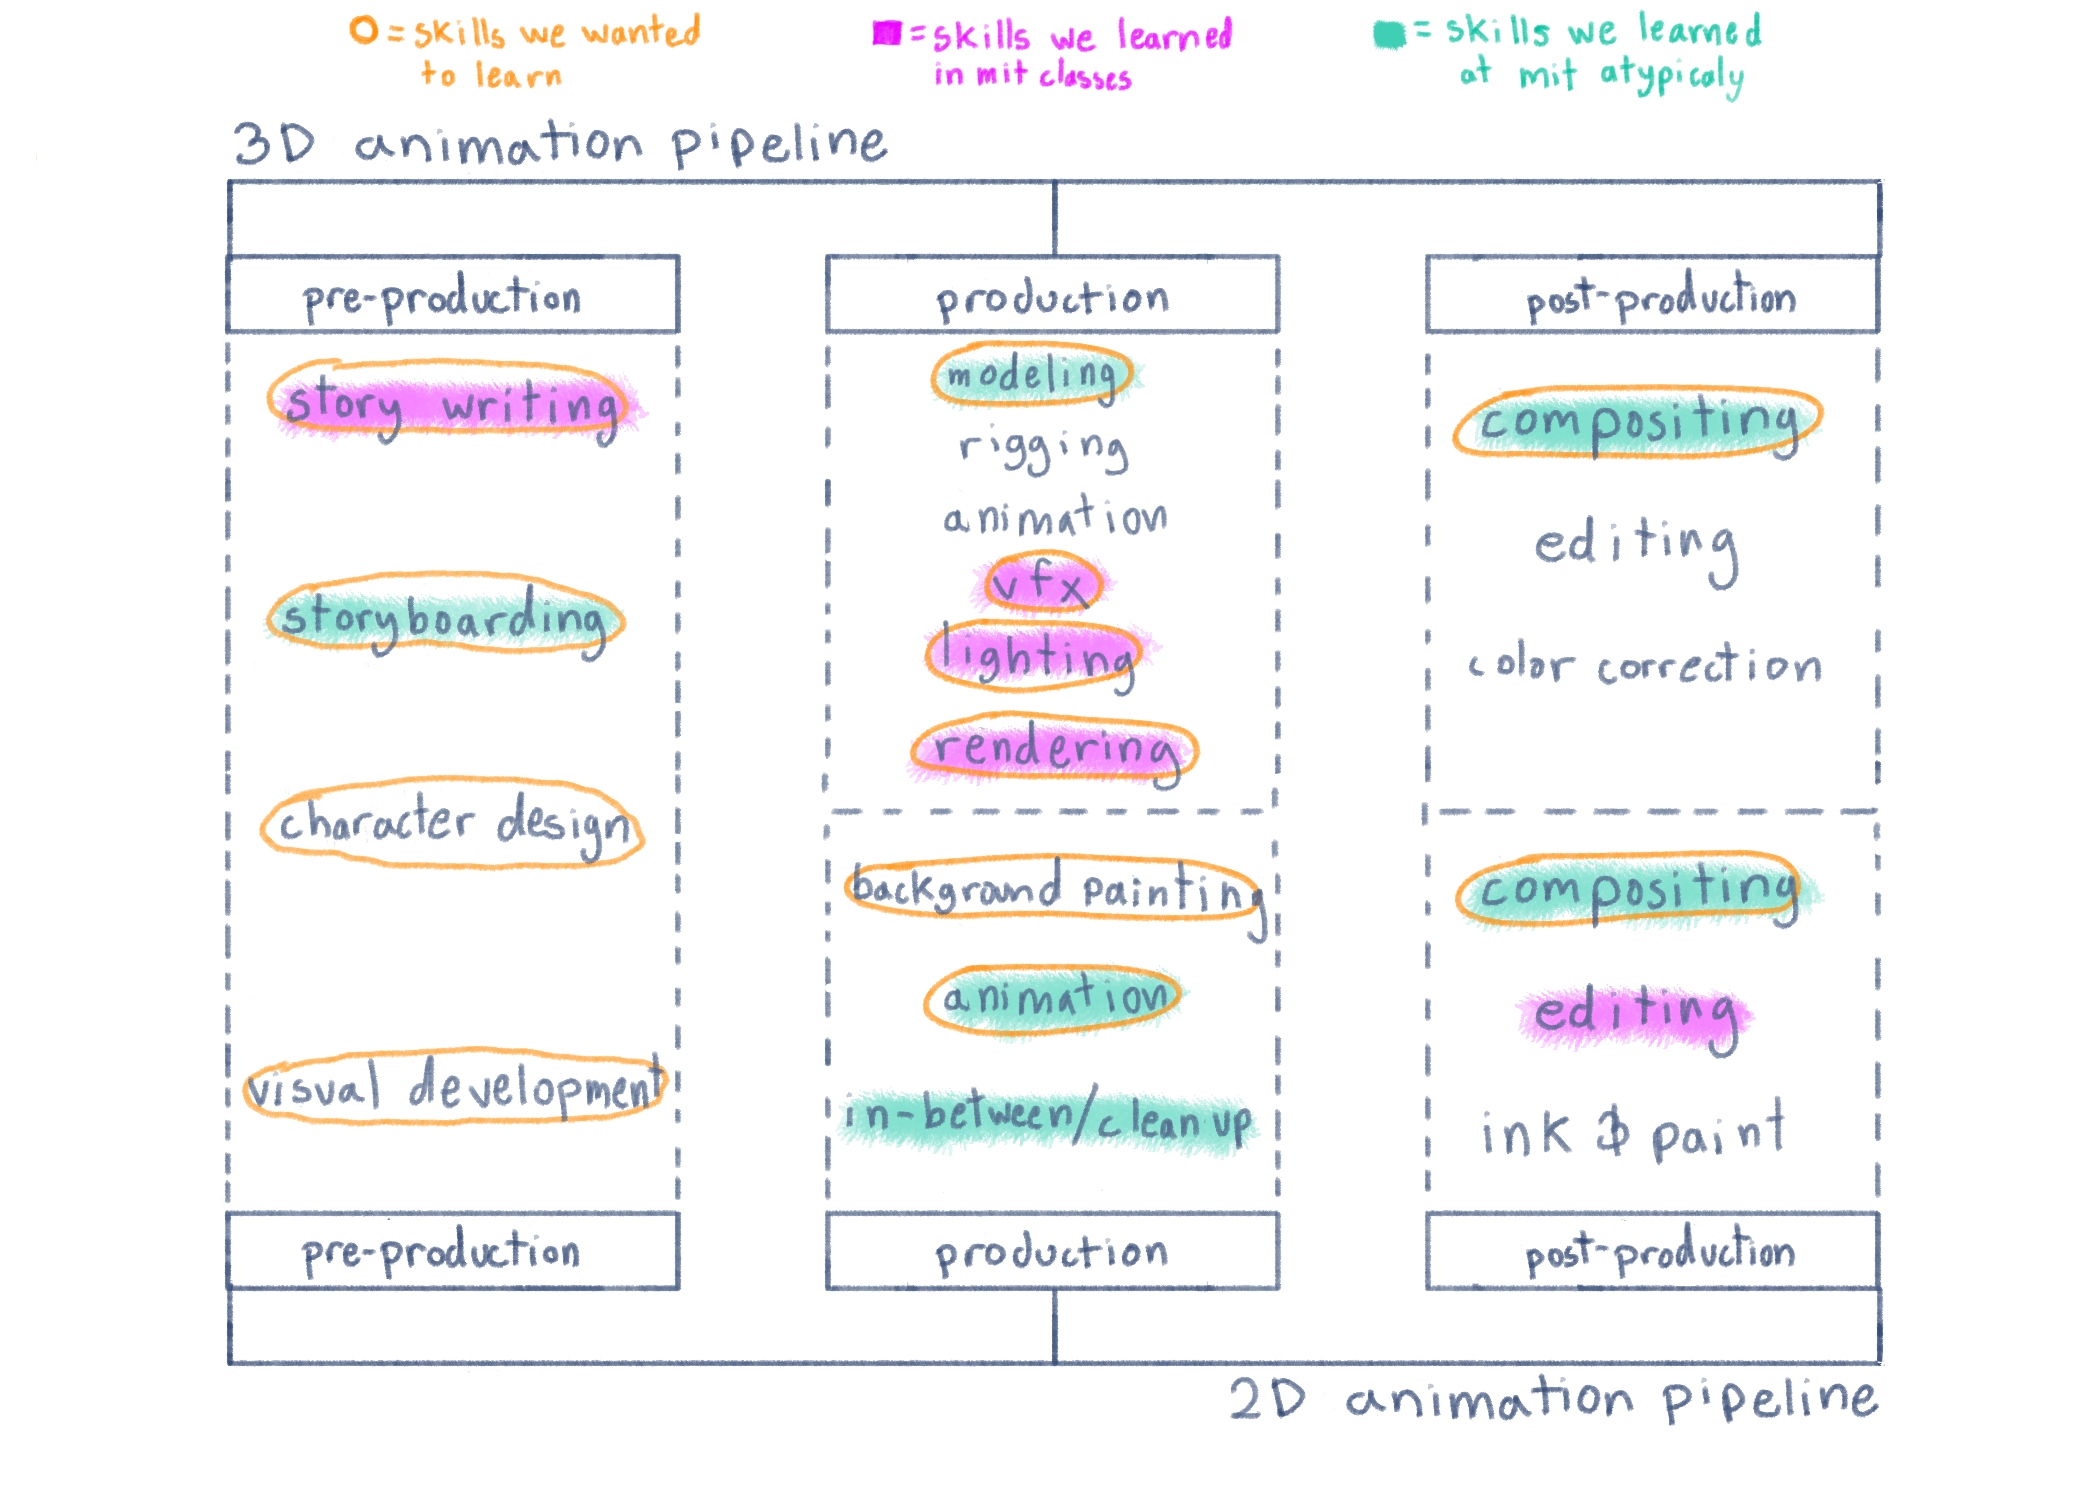 = skills we wanted
to learn
= skills we learned
in mit classes
= skills we learned
at mit atypicaly
3D animation pipeline
pre-production
production
post-production
story writing
storyboarding
character design
visual development
modeling
rigging
animation
vfx
lighting
rendering
compositing
editing
color correction
background painting
animation
in-between/clean up
compositing
editing
ink & paint
pre-production
production
post-production
2D animation pipeline